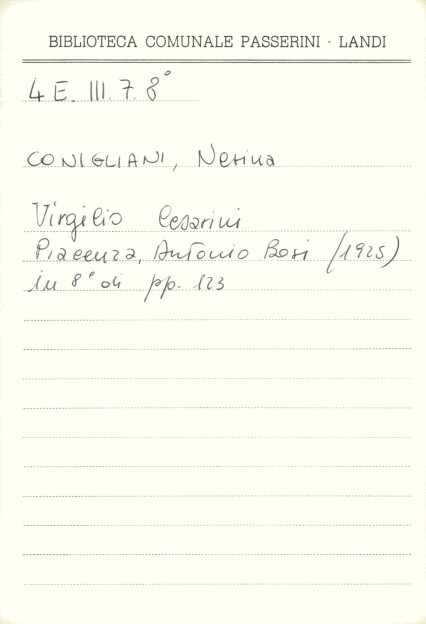 BIBLIOTECA COMUNALE PASSERINI - LANDI
4 E. III. 7. 8°
CONIGLIANI, Nerina
Virgilio Cesarini
Piacenza, Antonio Bosi (1925)
in 8° di pp. 123